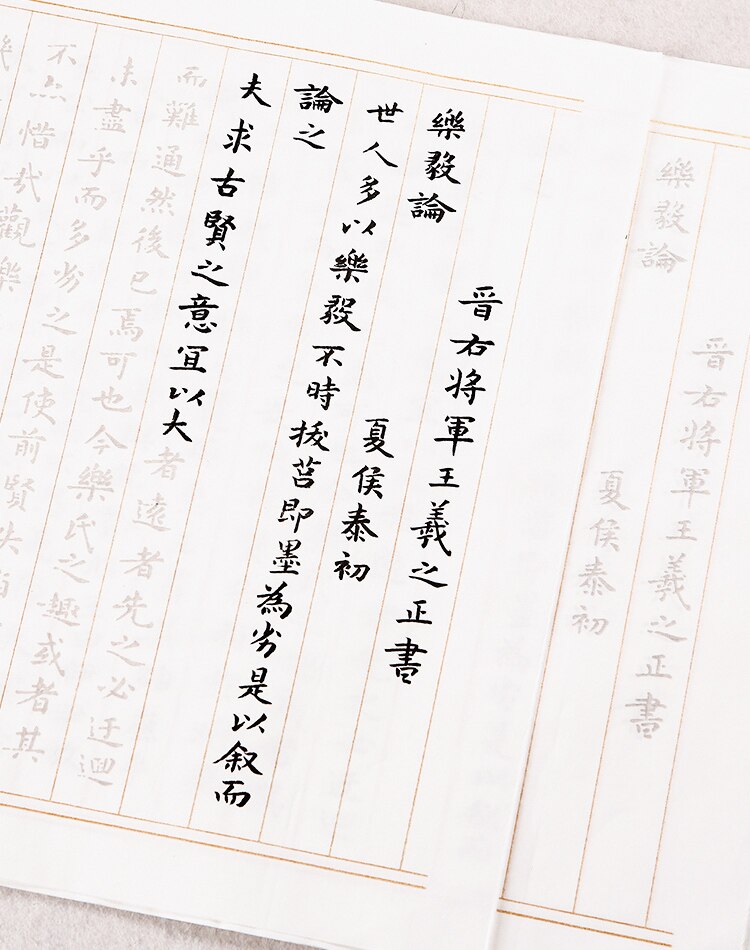 晉右將軍王羲之正書
樂毅論
夏侯泰初
晉右將軍王羲之正書
樂毅論
夏侯泰初
世人多以樂毅不時拔莒即墨為劣是以叙而
論之
夫求古賢之意宜以大者遠者先之必迂迴
而難通然後已焉可也今樂氏之趣或者其
未盡乎而多劣之是使前賢失
不亦惜哉觀樂